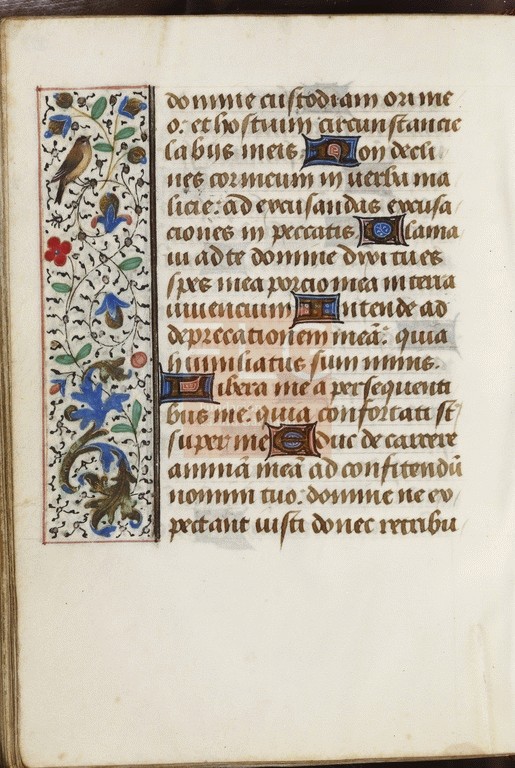 domine custodiam ori me
o: et hostium circunstancie
labiis meis. Non decli
nes cor meum in verba ma
licie: ad excusandas excusa
ciones in peccatis. Clama
vi ad te domine dixi tu es
spes mea porcio mea in terra
viventium. Intende ad
deprecationem meā: quia
humiliatus sum nimis.
Libera me a persequenti
bus me: quia confortati sūt
super me. Educ de carcere
animā meā ad confitendū
nomini tuo: domine me ex
pectant iusti donec retribu